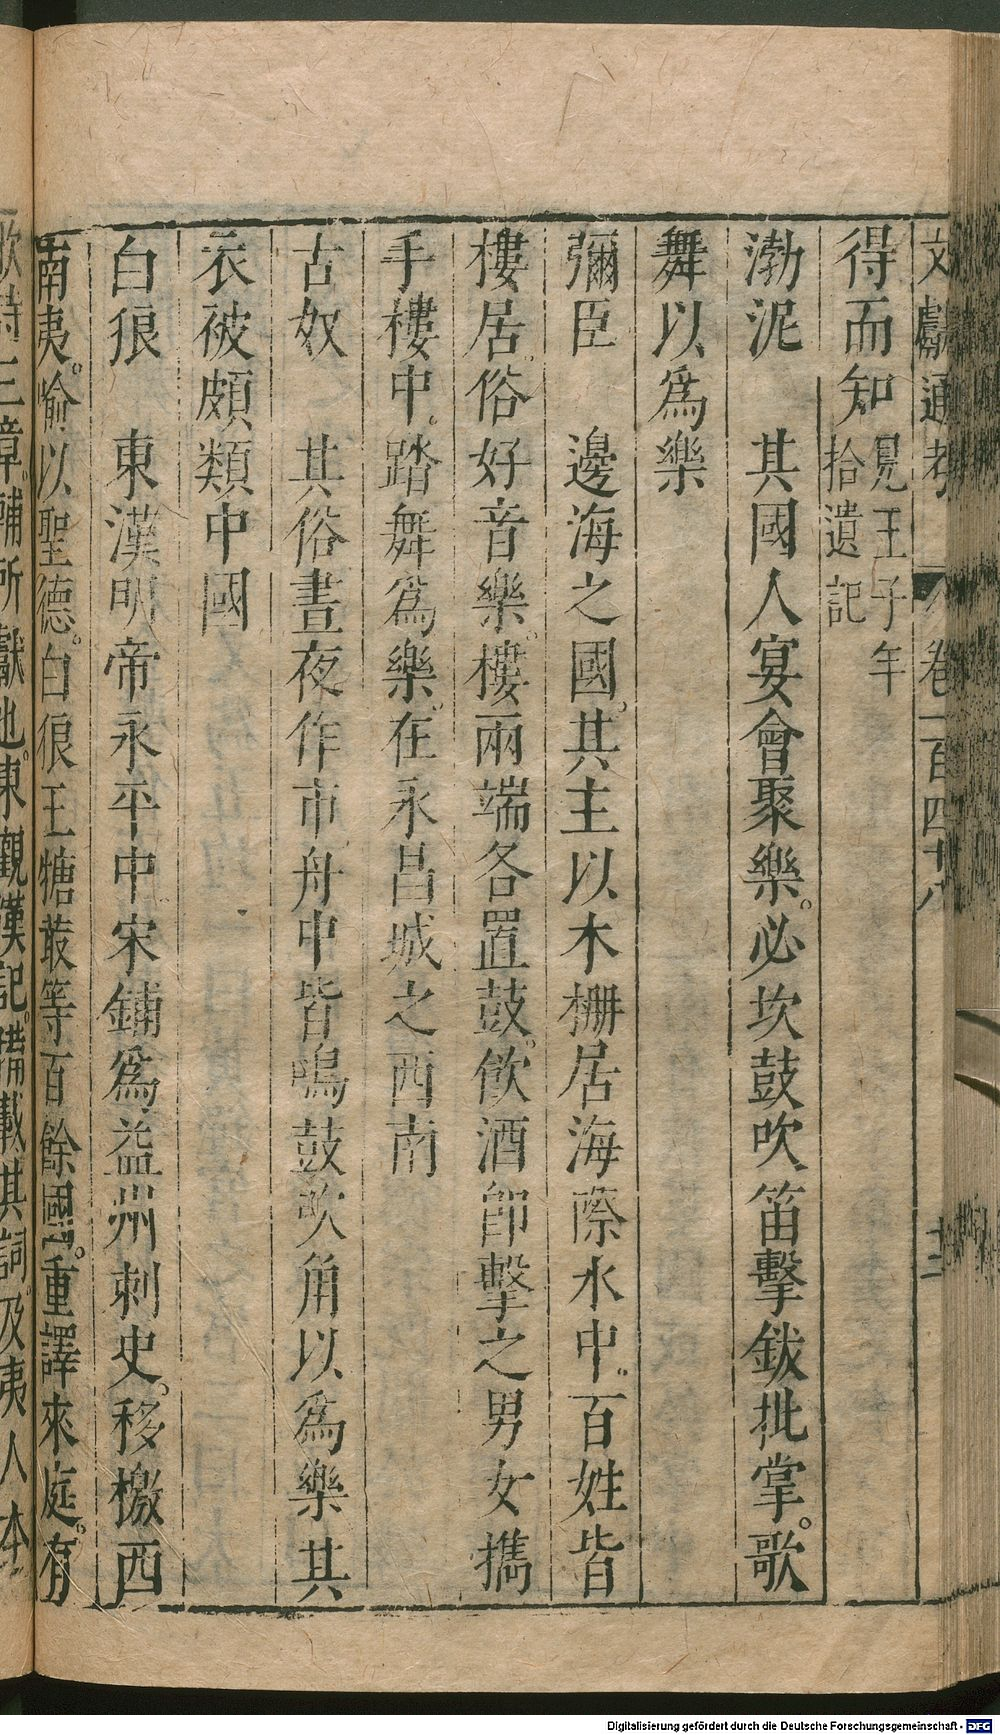 文獻通考 卷一百四十八 十二
得而知見王子年拾遺記
渤泥 其國人宴會聚樂。必坎鼓吹笛擊鈸批掌。歌
舞以爲樂
彌臣 邊海之國。其主以木柵居海際水中。百姓皆
樓居。俗好音樂。樓兩端各置鼓。飲酒卽擊之男女擕
手樓中。踏舞爲樂。在永昌城之西南
古奴 其俗晝夜作市舟中皆鳴鼓吹角以爲樂其
衣被頗類中國
白狼 東漢明帝永平中宋鋪爲益州刺史。移檄西
南夷。喻以聖德。白狼王㗬叢等百餘國。重譯來庭。有
歌詩三章。輔所獻也。東觀漢記。備載其詞。及夷人本
Digitalisierung gefördert durch die Deutsche Forschungsgemeinschaft - DFG